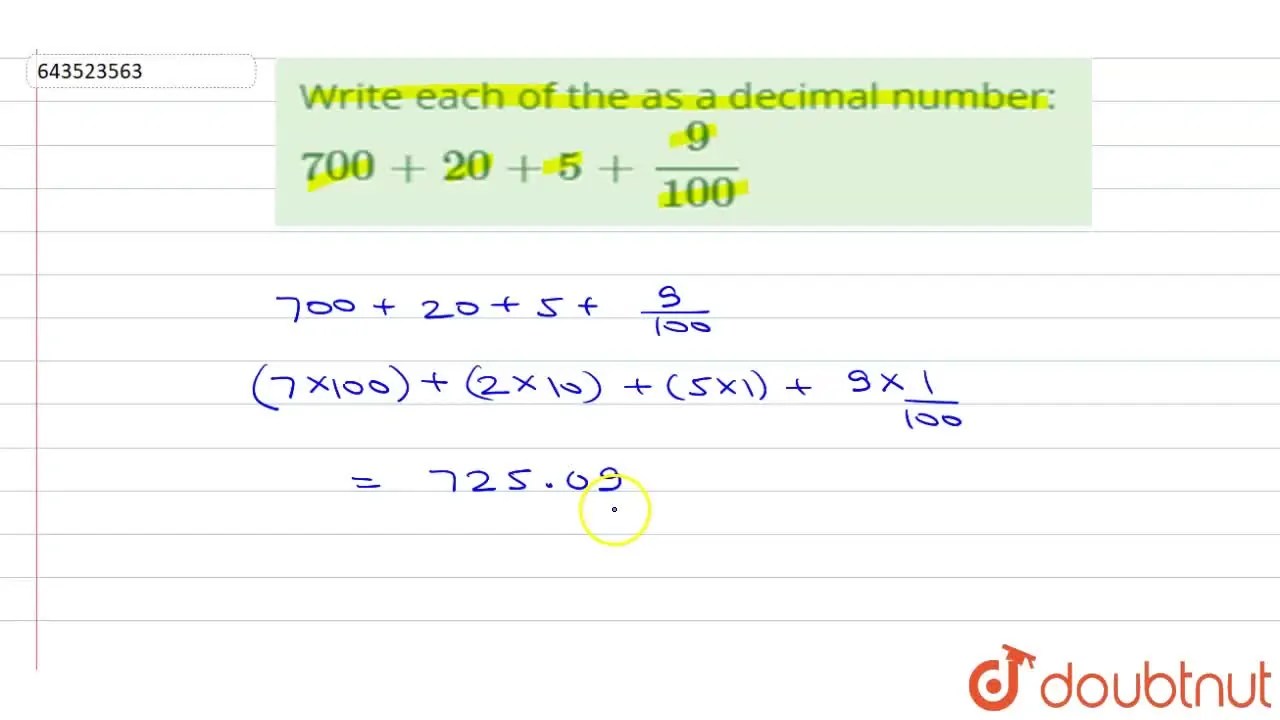 643523563
Write each of the as a decimal number:
700 + 20 + 5 + 9/100
700 + 20 + 5 + 9/100
(7×100) + (2×10) + (5×1) + 9×1/100
= 725.09
doubtnut